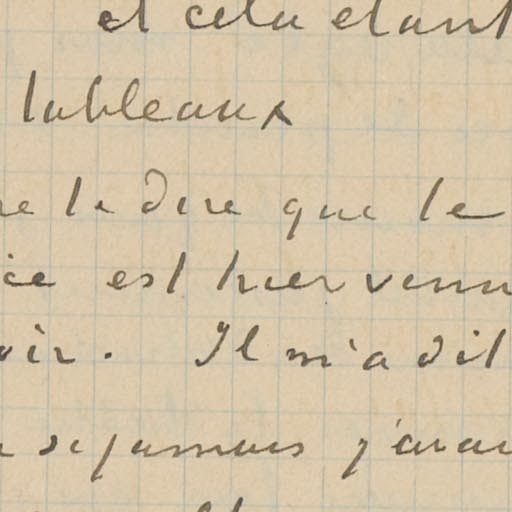 et cela étant
tableaux
re te dire que le
ice est hier venu
voir. Il m'a dit
si jamais j'avai